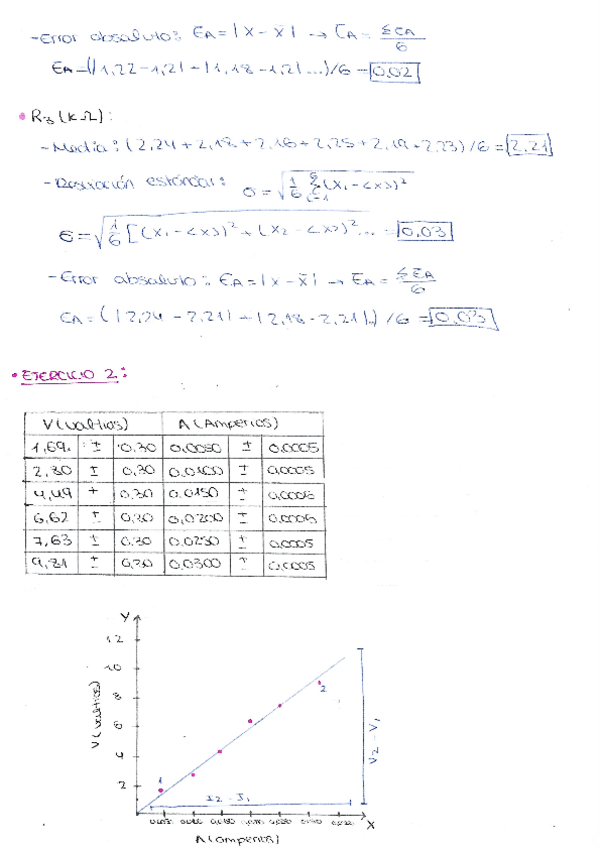 -Error absoluto: EA = |X - X̄| → ĒA = ΣEA/6
EA = (|1,22 - 1,21 - |1,18 - 1,21 ...)/6 = 0,02
• R3 (KΩ):
-Media: (2,24 + 2,18 + 2,16 + 2,25 + 2,19 + 2,23)/6 = 2,21
-Desviación estándar: σ = √(1/6 Σ (Xi - <X>)²)
σ = √(1/6 [(X1 - <X>)² + (X2 - <X>)² ... = 0,03
-Error absoluto: EA = |X - X̄| → ĒA = ΣEA/6
EA = (|2,24 - 2,21| - |2,18 - 2,21|..)/6 = 0,03
• EJERCICIO 2:
V (voltios) A (Amperios)
1,69. ± 0,30 0,0050 ± 0,0005
2,80 ± 0,30 0,0100 ± 0,0005
4,49 ± 0,30 0,0150 ± 0,0005
6,62 ± 0,30 0,0200 ± 0,0005
7,63 ± 0,30 0,0250 ± 0,0005
9,21 ± 0,30 0,0300 ± 0,0005
Y
12
10
8
6
4
2
V (voltios)
1
2
V2 - V1
I2 - I1
X
A (amperios)